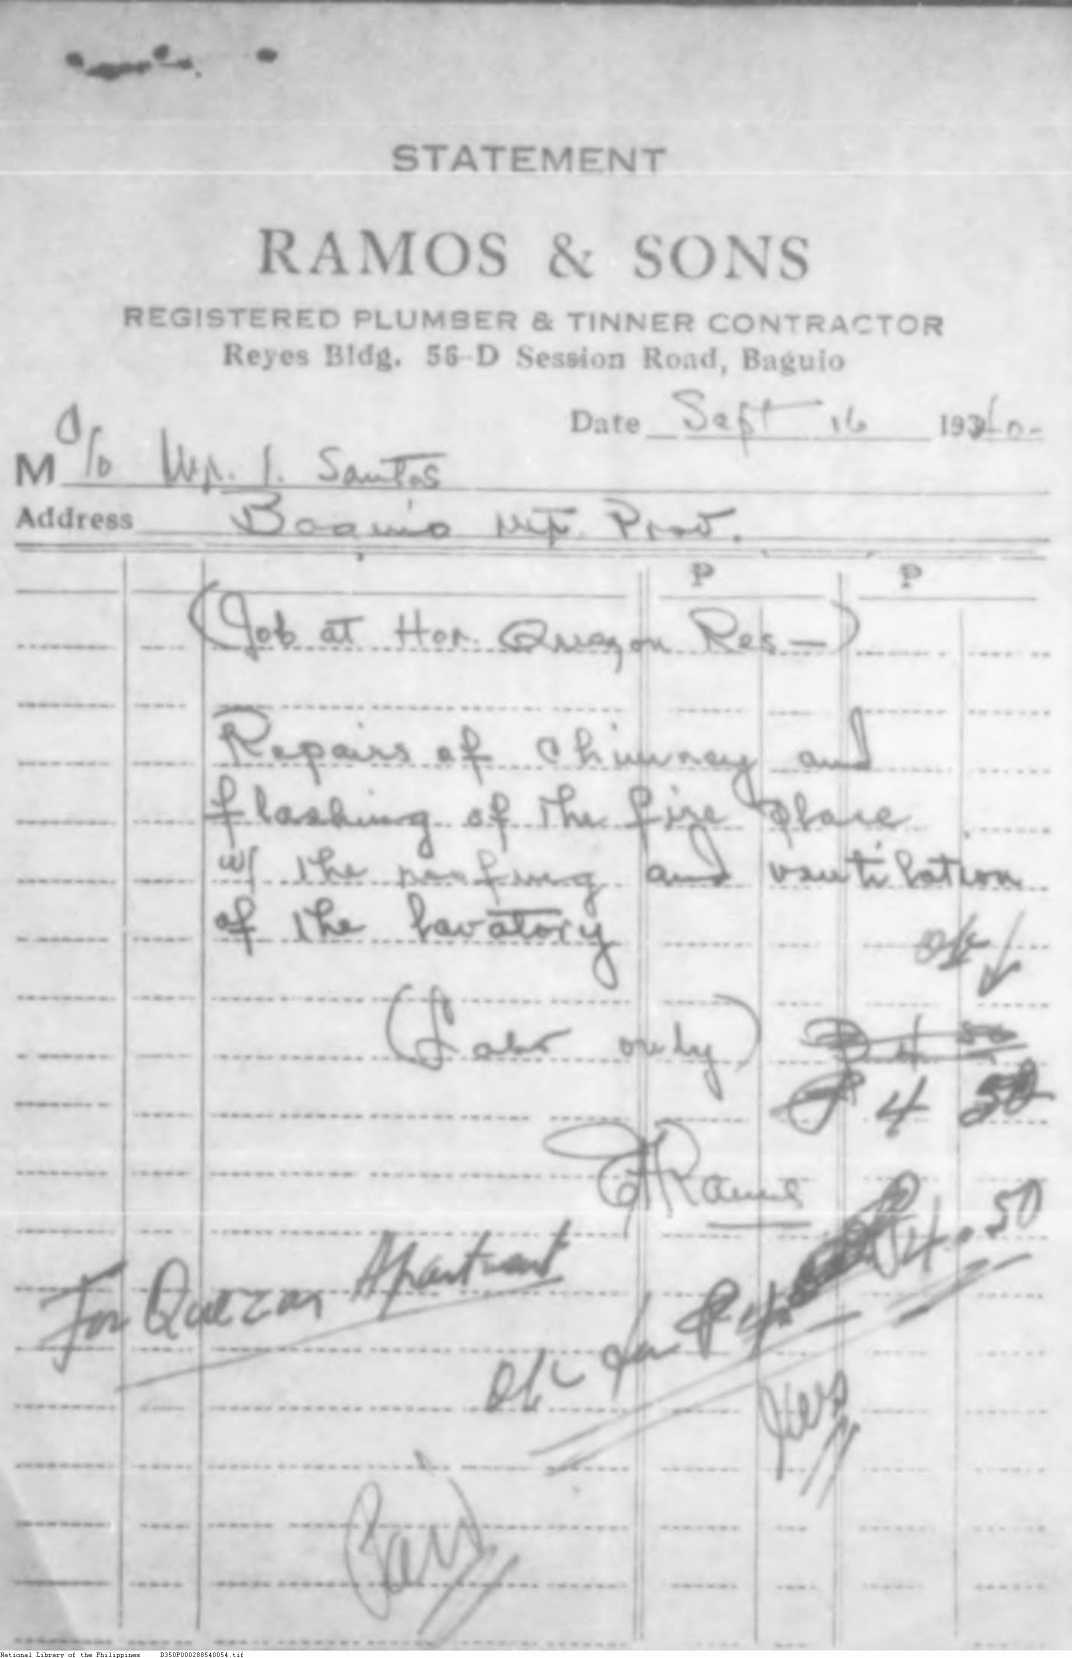 STATEMENT
RAMOS & SONS
REGISTERED PLUMBER & TINNER CONTRACTOR
Reyes Bldg. 56-D Session Road, Baguio
Date Sept 16 193
M c/o Mr. I. Santos
Address Baguio Mt. Prov.
P P
(Job at Hon. Quezon Res—)
Repairs of chimney and
flashing of the fire place
w/ the roofing and ventilation
of the lavatory
ok
(Labor only) P 4 50
P 4 50
Ramos
For Quezon Apartment
P4.50
ok for P4
Paid
National Library of the Philippines D350P000288540054.tif